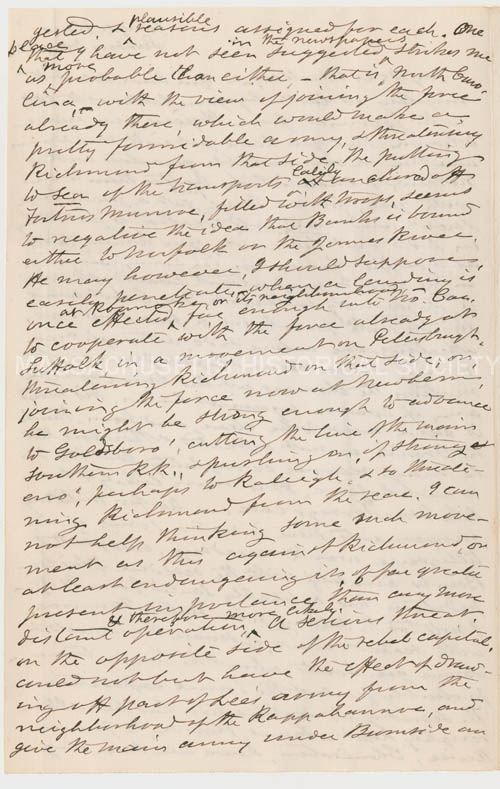 gested, & plausible reasons assigned for each. One
place that I have not seen suggested in the newspapers strikes me
as more probable than either – that is, North Caro-
lina, – with the view of joining the force
already there, which would make a
pretty formidable army, & threatening
Richmond from that side. The putting
to sea of the transports lately anchored off
Fortress Munroe, filled with troops, seems
to negative the idea that Banks is bound
either to Norfolk or the James River.
He may however, I should suppose,
easily penetrate, when a landing is
once effected at Roanoke, or its neighborhood, far enough into No. Car.
to cooperate with the force already at
Suffolk in a movement on Petersburgh,
threatening Richmond on that side; or
joining the force now at Newbern,
he might be strong enough to advance
to Goldsboro', cutting the line of the main
southern R.R., & pushing on, if strong
eno', perhaps to Raleigh, & so threate-
ning Richmond from the rear. I can
not help thinking some such move-
ment as this against Richmond, or
at least endangering it, is of far greater
present importance, & therefore more likely, than any more
distant operation. A serious threat,
on the opposite side of the rebel capital,
could not but have the effect of draw-
ing off part of Lee's army from the
neighborhood of the Rappahannoc, and
give the main army under Burnside an
MASSACHUSETTS HISTORICAL SOCIETY